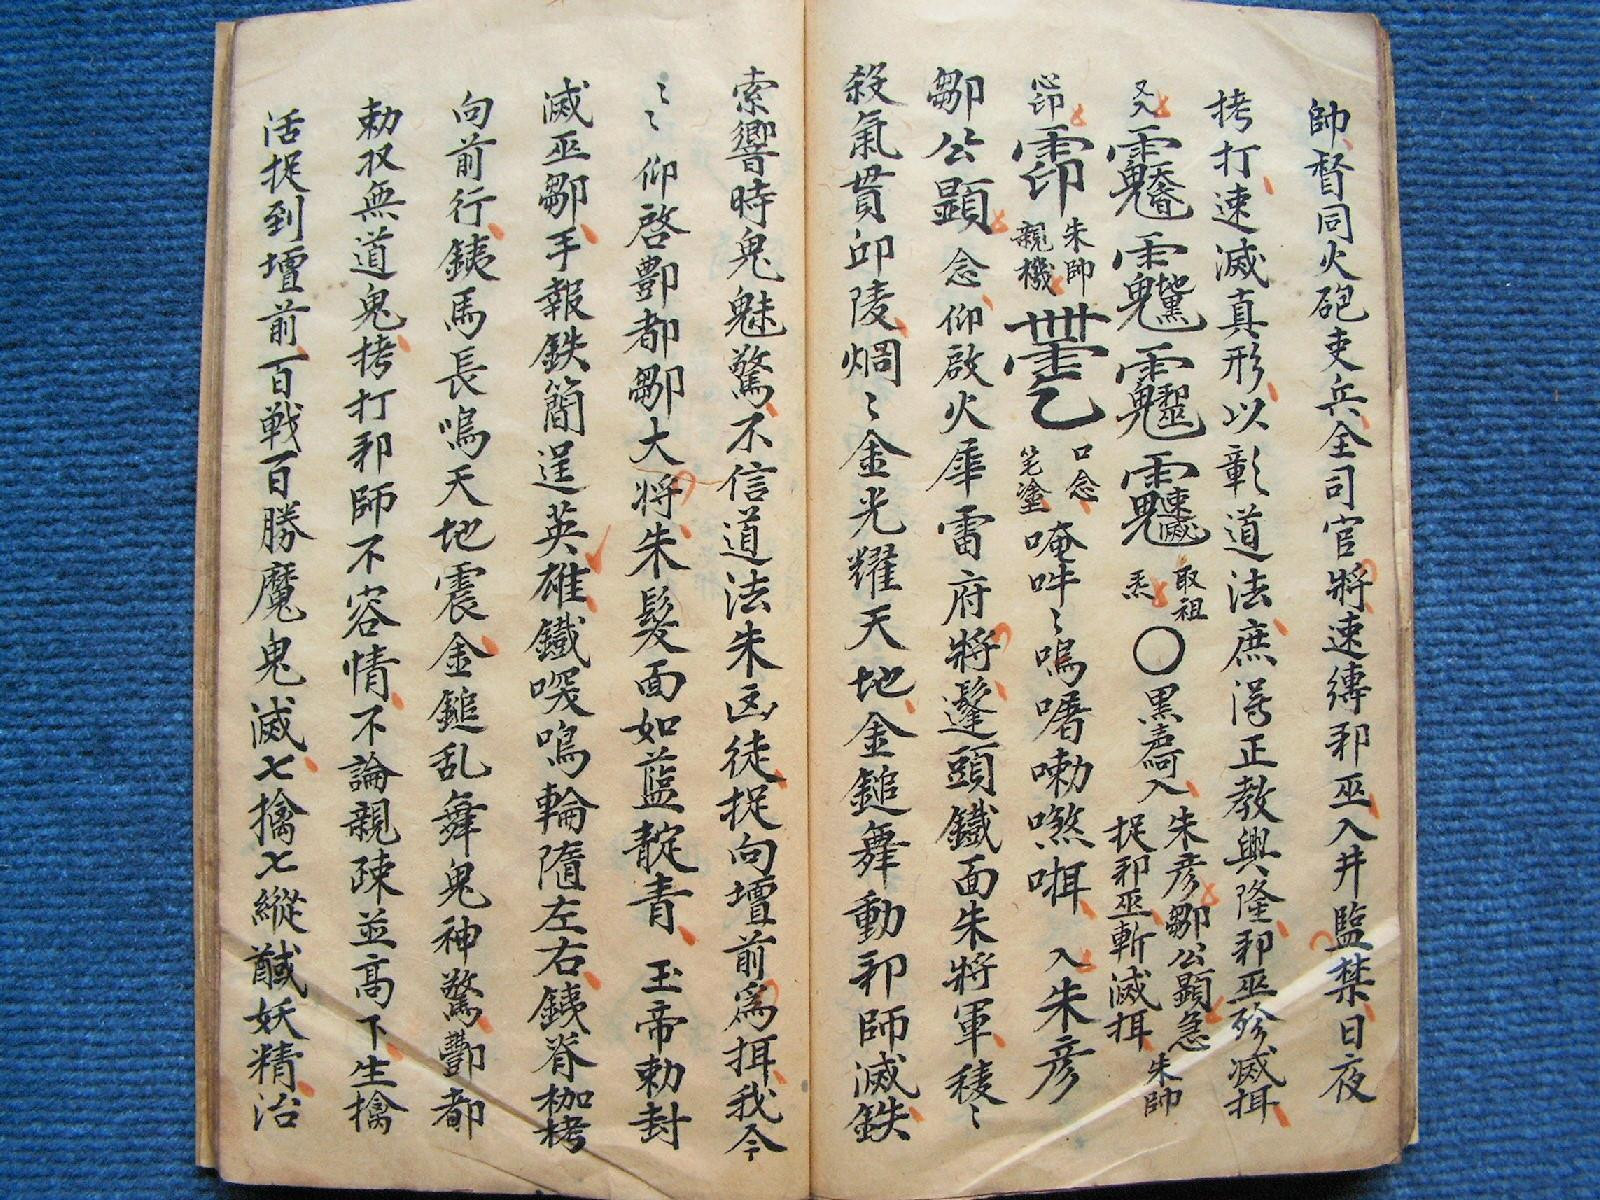 帥督同火砲吏兵全司官將速縛邪巫入井監禁日夜
拷打速滅真形以彰道法庶得正教興隆邪巫殄滅揖
又入 取祖炁 〇 黑 入 朱彥鄒公顯急捉邪巫斬滅揖 朱帥
心印 朱帥親機 口念 笔塗 唵吽〻嗚𡃤嘞㷟㖅 入朱彥
鄒公顯 念仰啟火犀雷府將 髼頭鐵面朱將軍 稜〻
殺氣貫邱陵 焵〻金光耀天地 金鎚舞動邪師滅 鉄
索響時鬼魅驚 不信道法朱凶徒 捉向壇前為揖 我今
〻〻 仰啓酆都鄒大將 朱髮面如藍靛青 玉帝勅封
滅巫鄒 手報鉄簡逞英雄 鐵 鳴輪隨左右 銕脊枷栲
向前行 銕馬長鳴天地震 金鎚乱舞鬼神驚 酆都
勅㕛無道鬼 拷打邪師不容情 不論親疎並高下 生擒
活捉到壇前 百戰百勝魔鬼滅 七擒七縱馘妖精 治